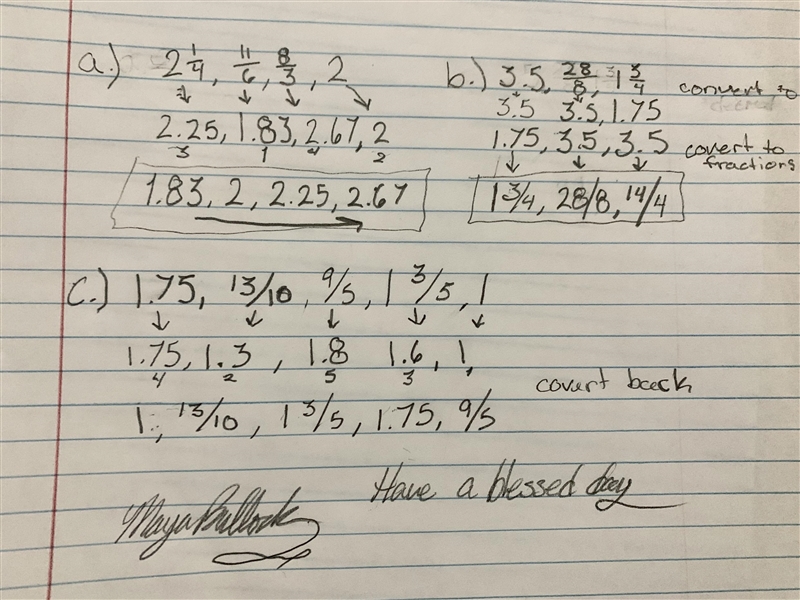 a.) 2 1/4, 11/6, 8/3, 2
2.25, 1.83, 2.67, 2
3 1 4 2
1.83, 2, 2.25, 2.67
b.) 3.5, 28/8, 1 3/4 convert to
3.5 3.5, 1.75
1.75, 3.5, 3.5 covert to
fractions
1 3/4, 28/8, 14/4
c.) 1.75, 13/10, 9/5, 1 3/5, 1
1.75, 1.3, 1.8 1.6, 1,
4 2 5 3 1
covert back
1, 13/10, 1 3/5, 1.75, 9/5
Have a blessed day
Maya Bullock